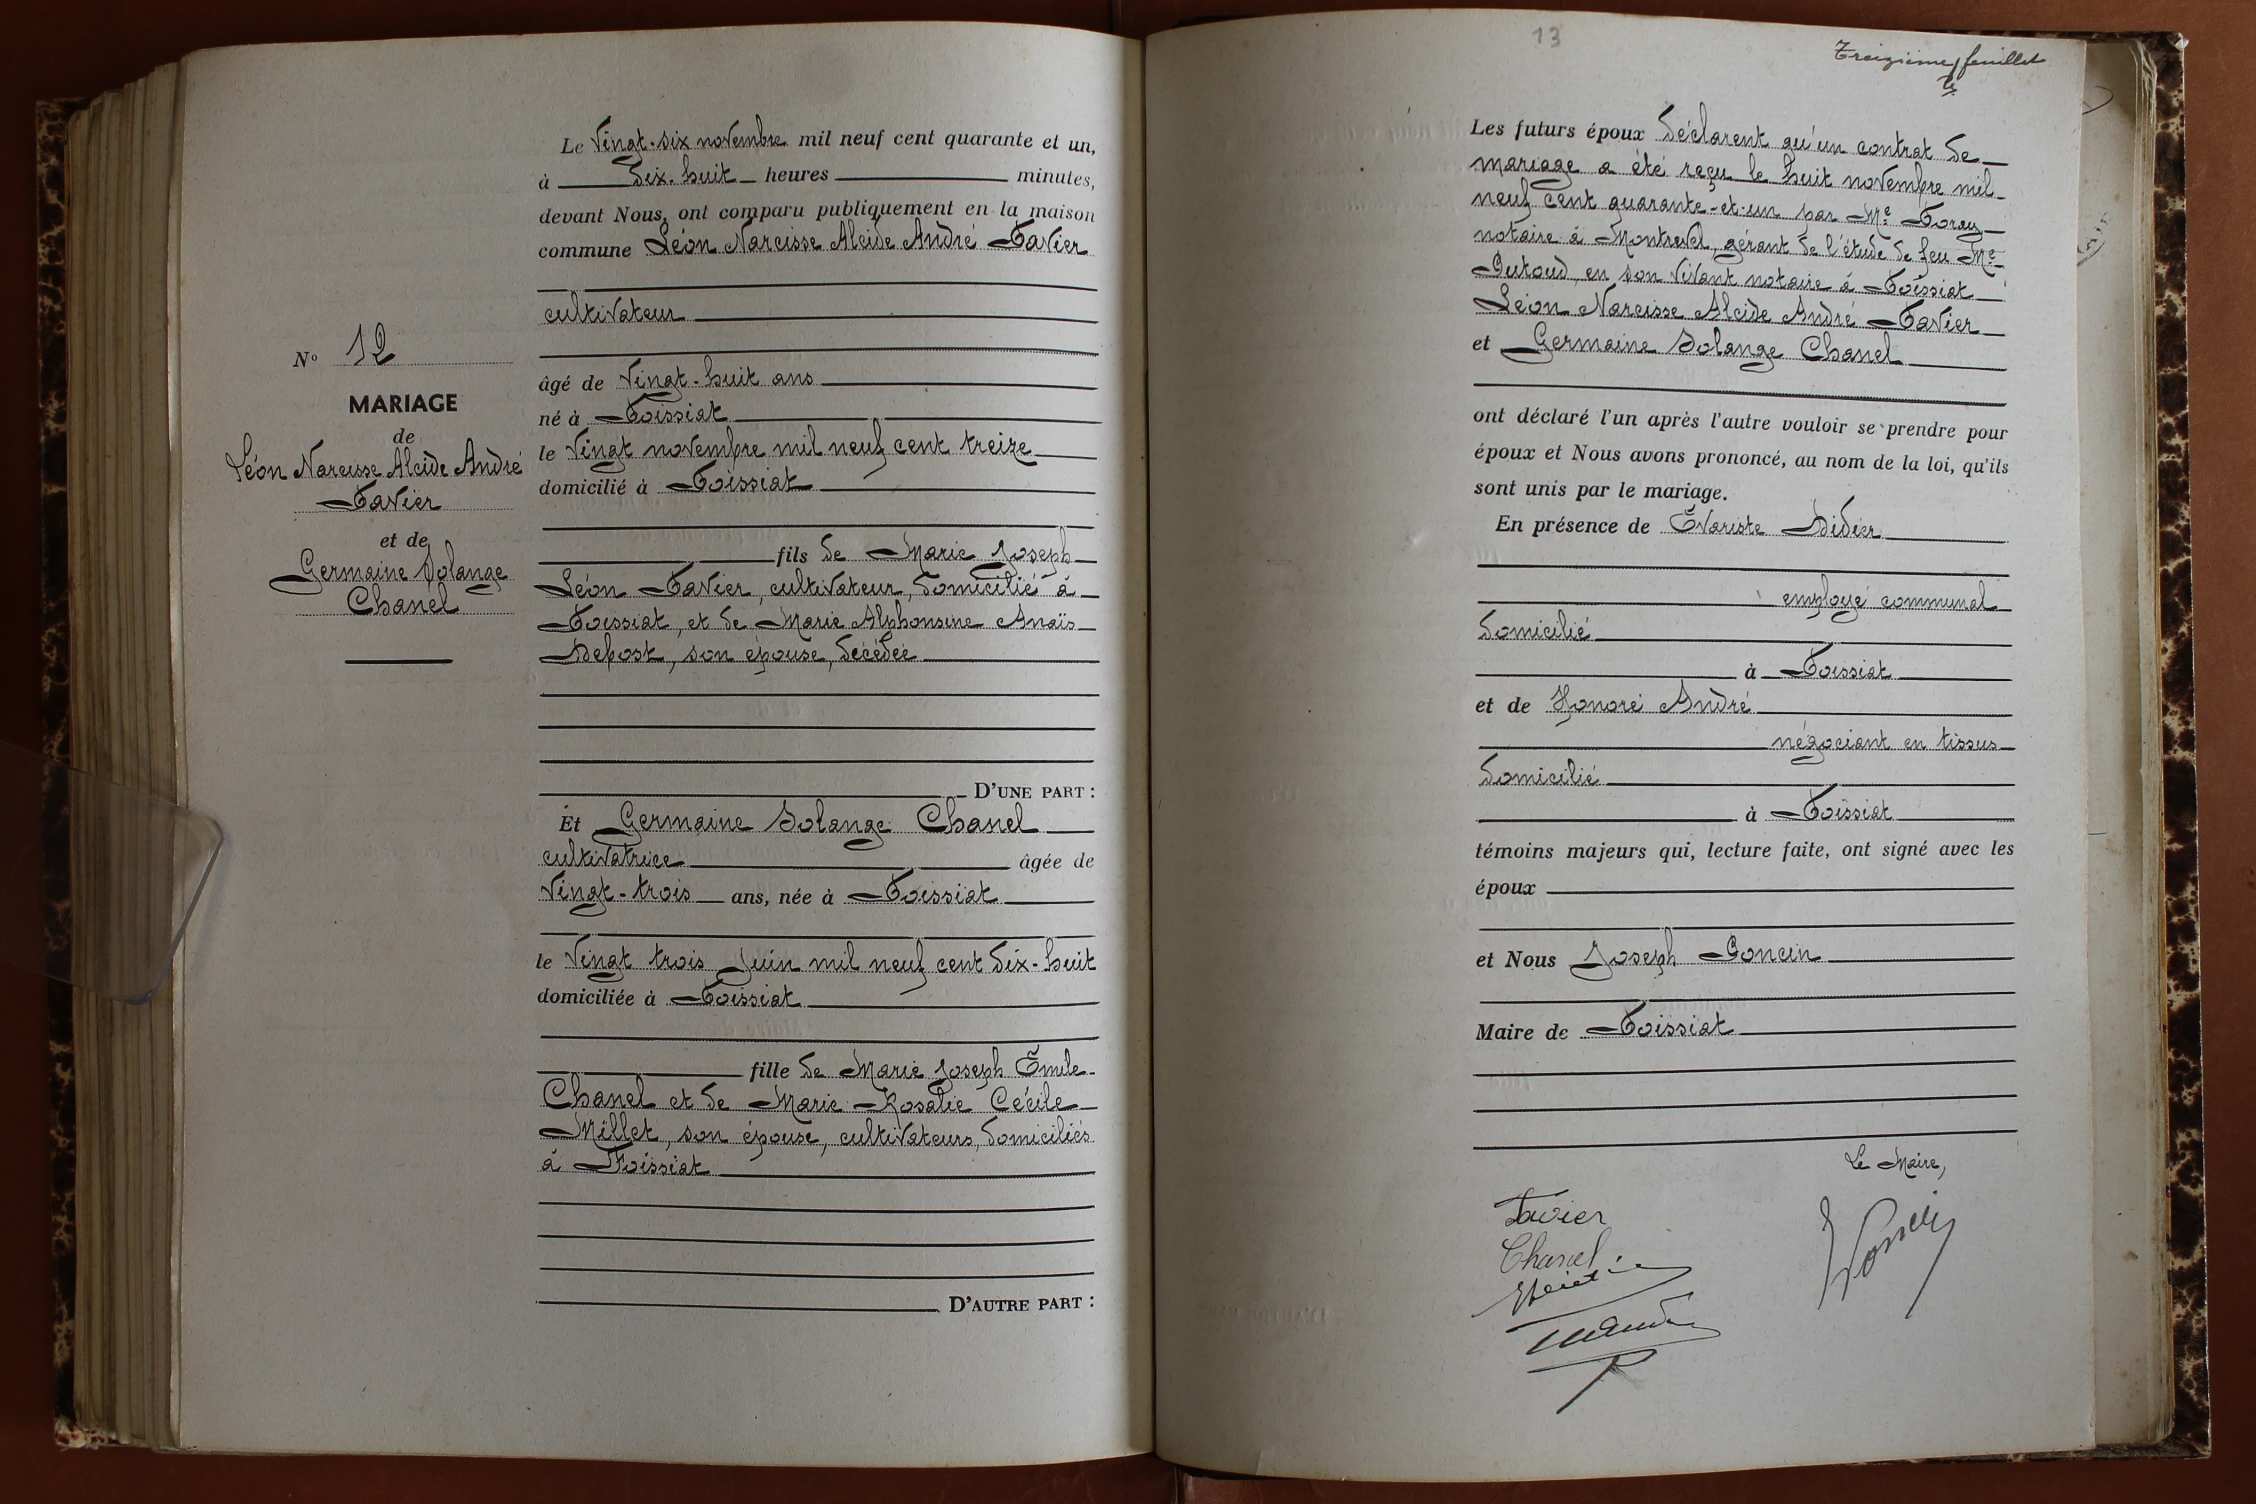 Le vingt-six novembre mil neuf cent quarante et un,
à dix-huit heures minutes,
devant Nous, ont comparu publiquement en la maison
commune Léon Narcisse Alcide André Favier
cultivateur
N° 12
MARIAGE
de
Léon Narcisse Alcide André
Favier
et de
Germaine Solange
Chanel
âgé de vingt-huit ans
né à Foissiat
le vingt novembre mil neuf cent treize
domicilié à Foissiat
fils de Marie Joseph
Léon Favier, cultivateur, domicilié à
Foissiat, et de Marie Alphonsine Anaïs
Depost, son épouse, décédée
D'UNE PART :
Et Germaine Solange Chanel
cultivatrice âgée de
vingt-trois ans, née à Foissiat
le vingt trois juin mil neuf cent dix-huit
domiciliée à Foissiat
fille de Marie Joseph Émile
Chanel et de Marie Rosalie Cécile
Millet, son épouse, cultivateurs, domiciliés
à Foissiat
D'AUTRE PART :
13
Treizième feuillet
Les futurs époux déclarent qu'un contrat de
mariage a été reçu le huit novembre mil
neuf cent quarante-et-un par Me
notaire à Montrevel, gérant de l'étude de feu Me
en son vivant notaire à Foissiat
Léon Narcisse Alcide André Favier
et Germaine Solange Chanel
ont déclaré l'un après l'autre vouloir se prendre pour
époux et Nous avons prononcé, au nom de la loi, qu'ils
sont unis par le mariage.
En présence de Évariste Didier
employé communal
domicilié
à Foissiat
et de Honoré André
négociant en tissus
domicilié
à Foissiat
témoins majeurs qui, lecture faite, ont signé avec les
époux
et Nous Joseph Poncin
Maire de Foissiat
Le Maire,
Favier
Chanel
Poncin